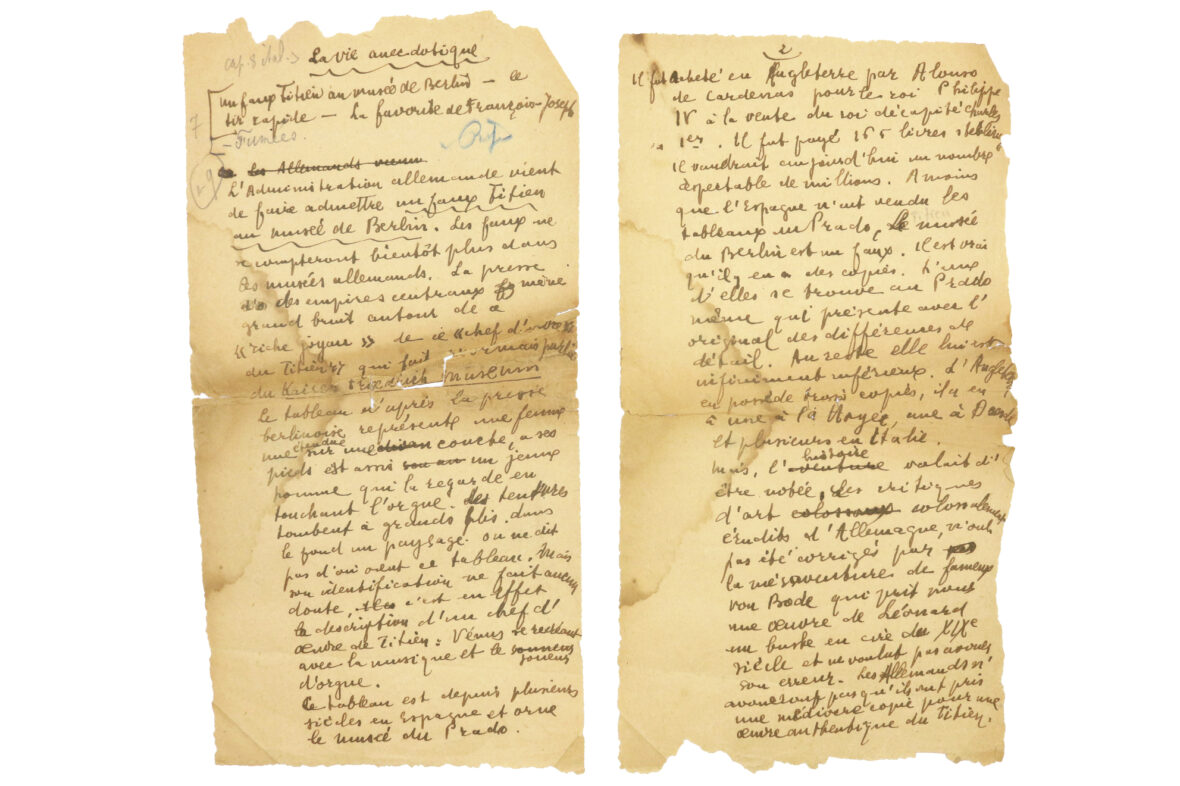 cap. 8 ital.
La vie anecdotique
un faux Titien au musée de Berlin — le
tir rapide — La favorite de François-Joseph
7
— Fumées.
Les Allemands
L'Administration allemande vient
de faire admettre un faux Titien
au musée de Berlin. Les faux ne
se compteront bientôt plus dans
les musées allemands. La presse
des empires centraux mène
grand bruit autour de ce
« riche joyau » de ce « chef d'œuvre
du Titien » qui fait désormais partie
du Kaiser Friedrich museum
Le tableau d'après la presse
berlinoise représente une femme
nue étendue sur une divan couche, a ses
pieds est assis son un jeune
homme qui la regarde en
touchant l'orgue. Des tentures
tombent à grands plis. dans
le fond un paysage. On ne dit
pas d'où vient ce tableau. Mais
son identification ne fait aucun
doute, c'est en effet
la description d'un chef d'
œuvre de Titien : Vénus se récréant
avec la musique et le sonneur
joueur
d'orgue.
Ce tableau est depuis plusieurs
siècles en Espagne et orne
le musée du Prado.
2
Il fut acheté en Angleterre par Alonso
de Cardenas pour le roi Philippe
IV à la vente du roi décapité Charles
1er. Il fut payé 165 livres sterling
il vaudrait aujourd'hui un nombre
respectable de millions. A moins
que l'Espagne n'ait vendu les
tableaux du Prado, Le musée
du Berlin est un faux. Il est vrai
qu'il y en a des copies. L'une
d'elles se trouve au Prado
même qui présente avec l'
original des différences de
détail. Au reste elle lui est
infiniment inférieure. L'Angleterre
en possède trois copies, il y en
a une à la Haye, une à Dresde
et plusieurs en Italie.
histoire
mais, l'aventure valait d'
être notée. Les critiques
d'art colossaux colossalement
érudits d'Allemagne, n'ont
pas été corrigés par
la mésaventure de fameux
von Bode qui prit pour
une œuvre de Léonard
un buste en cire du XIXe
siècle et ne voulut pas avouer
son erreur. Les Allemands n'
avoueront pas qu'ils ont pris
une médiocre copie pour une
œuvre authentique du Titien.